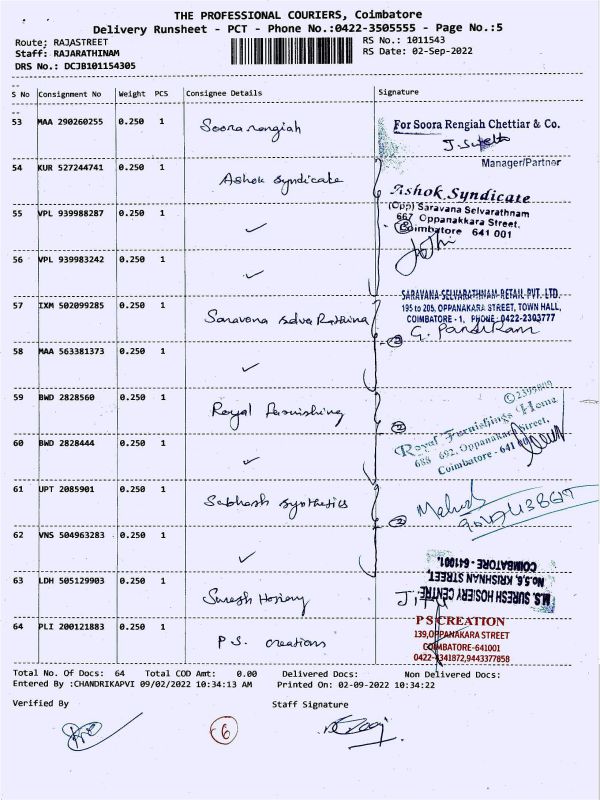 THE PROFESSIONAL COURIERS, Coimbatore
Delivery Runsheet - PCT - Phone No.:0422-3505555 - Page No.:5
Route; RAJASTREET
Staff: RAJARATHINAM
DRS No.: DCJB101154305
RS No.: 1011543
RS Date: 02-Sep-2022
S No Consignment No Weight PCS Consignee Details Signature
53 MAA 290260255 0.250 1 Soora rengiah
For Soora Rengiah Chettiar & Co.
Manager/Partner
54 KUR 527244741 0.250 1 Ashok Syndicate
Ashok Syndicate
(Opp) Saravana Selvarathnam
667 Oppanakkara Street,
Coimbatore 641 001
55 VPL 939988287 0.250 1 ✓
②
56 VPL 939983242 0.250 1 ✓
57 IXM 502099285 0.250 1 Saravana selva Rathina
SARAVANA SELVARATHNAM RETAIL PVT. LTD.
195 to 205, OPPANAKARA STREET, TOWN HALL,
COIMBATORE - 1. PHONE: 0422-2303777
②
58 MAA 563381373 0.250 1 ✓
59 BWD 2828560 0.250 1 Royal furnishing
②
Royal Furnishings Home
688 692, Oppanakara Street,
Coimbatore - 641
60 BWD 2828444 0.250 1 ✓
61 UPT 2085901 0.250 1 Subhash synthetics
②
62 VNS 504963283 0.250 1 ✓
63 LDH 505129903 0.250 1 Suresh Hosiery
JITU
M.S. SURESH HOSIERY CENTRE
No.5,6, KRISHNAN STREET,
COIMBATORE - 641001.
64 PLI 200121883 0.250 1 P.S. creations
P S CREATION
139, OPPANAKARA STREET
COIMBATORE-641001
0422-4341872,9443377858
Total No. Of Docs: 64 Total COD Amt: 0.00 Delivered Docs: Non Delivered Docs:
Entered By :CHANDRIKAPVI 09/02/2022 10:34:13 AM Printed On: 02-09-2022 10:34:22
Verified By Staff Signature
⑥